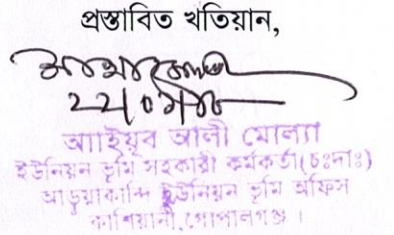 প্রস্তাবিত খতিয়ান,
আইয়ুব আলী মোল্যা
ইউনিয়ন ভূমি সহকারী কর্মকর্তা(চঃদাঃ)
আড়ুয়াকান্দি ইউনিয়ন ভূমি অফিস
কাশিয়ানী, গোপালগঞ্জ।